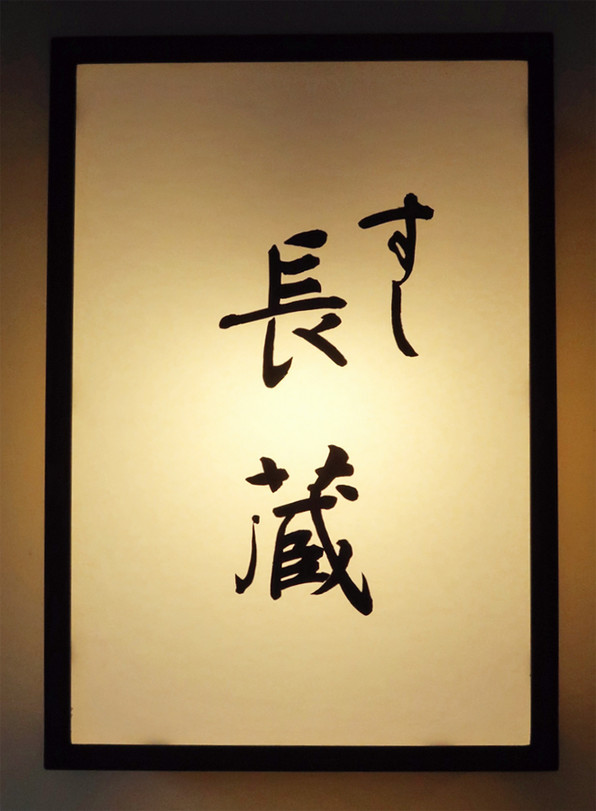 すし
長蔵